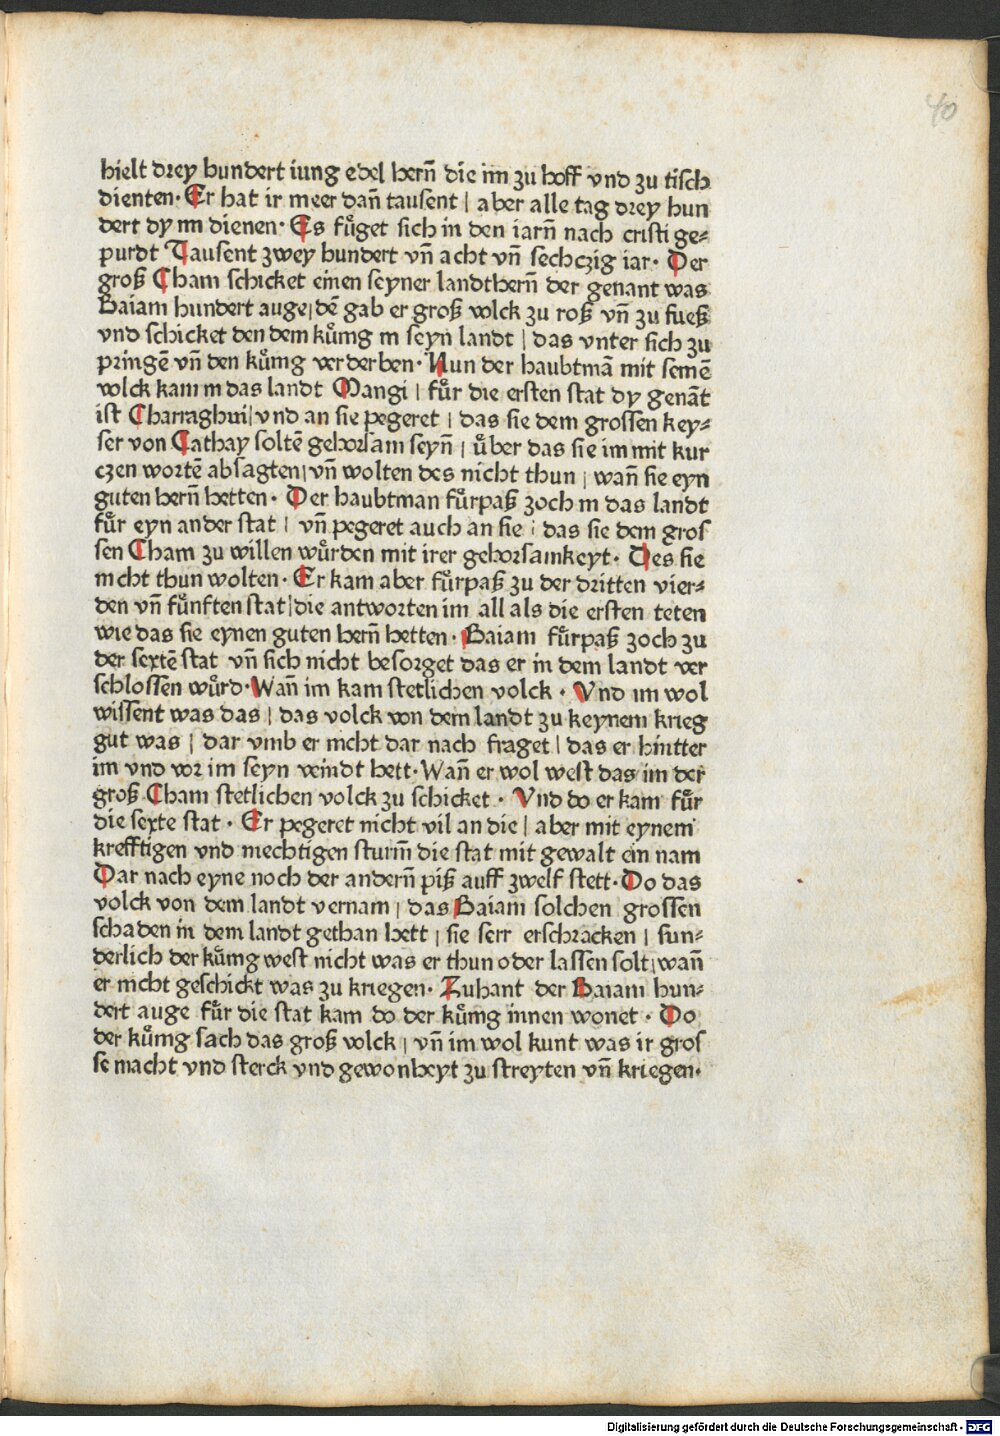 40
hielt drey hundert iung edel hern̄ die im zu hoff vnd zu tisch
dienten· Er hat ir meer dan̄ tausent | aber alle tag drey hun
dert dy im dienen· Es fuͤget sich in den iarn̄ nach cristi ge⸗
purdt Tausent zwey hundert vn̄ acht vn̄ sechczig iar· Der
groß Cham schicket einen seyner landthern̄ der genant was
Baiam hundert auge| dē gab er groß volck zu roß vn̄ zu fueß
vnd schicket den dem kuͤnig in seyn landt | das vnter sich zu
pringē vn̄ den kuͤnig verderben· Nun der haubtmā mit seinē
volck kam in das landt Mangi | fuͤr die ersten stat dy genāt
ist Charraghui| vnd an sie pegeret | das sie dem grossen key⸗
ser von Cathay soltē gehorsam seyn̄ | uͤber das sie im mit kur
czen wortē absagten| vn̄ wolten des nicht thun | wan̄ sie eyn
guten hern̄ hetten· Der haubtman fuͤrpaß zoch in das landt
fuͤr eyn ander stat | vn̄ pegeret auch an sie | das sie dem gros
sen Cham zu willen wuͤrden mit irer gehorsamkeyt· Des sie
nicht thun wolten· Er kam aber fuͤrpaß zu der dritten vier⸗
den vn̄ fuͤnften stat| die antworten im all als die ersten teten
wie das sie eynen guten hern̄ hetten· Baiam fuͤrpaß zoch zu
der sextē stat vn̄ sich nicht besorget das er in dem landt ver
schlossen wuͤrd· Wan̄ im kam stetlichen volck· Vnd im wol
wissent was das | das volck von dem landt zu keynem krieg
gut was | dar vmb er nicht dar nach fraget | das er hintter
im vnd vor im seyn veindt hett· Wan̄ er wol west das im der
groß Cham stetlichen volck zu schicket· Vnd do er kam fuͤr
die sexte stat· Er pegeret nicht vil an die | aber mit eynem
krefftigen vnd mechtigen sturm̄ die stat mit gewalt ein nam
Dar nach eyne noch der andern̄ piß auff zwelf stett· Do das
volck von dem landt vernam | das Baiam solchen grossen
schaden in dem landt gethan hett | sie serr erschracken | sun⸗
derlich der kuͤnig west nicht was er thun oder lassen solt| wan̄
er nicht geschickt was zu kriegen· Zuhant der Baiam hun⸗
dert auge fuͤr die stat kam do der kuͤnig innen wonet· Do
der kuͤnig sach das groß volck | vn̄ im wol kunt was ir gros
se macht vnd sterck vnd gewonheyt zu streyten vn̄ kriegen·
Digitalisierung gefördert durch die Deutsche Forschungsgemeinschaft - DFG